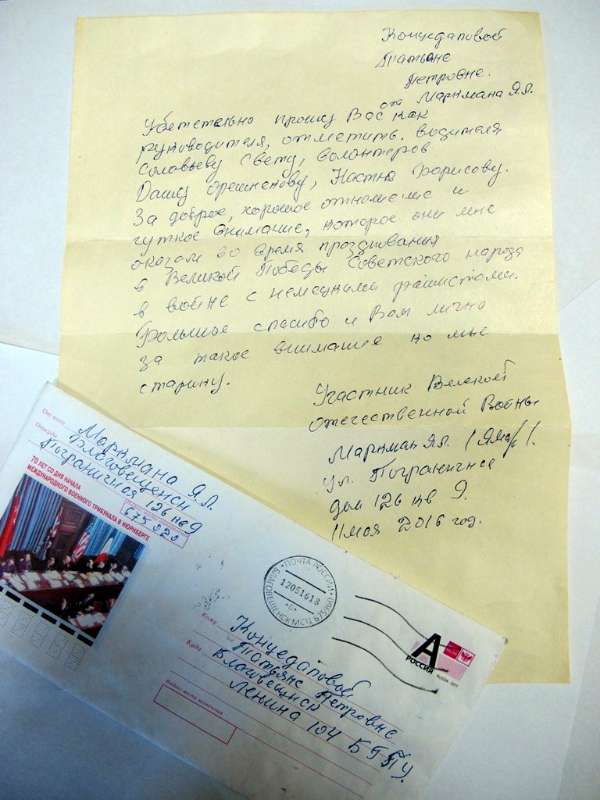 Концедаповой
Татьяне
Петровне.
от Маркмана Я.Л.
Убетельно прошу Вас как
руководителя, отметить. водителя
Соловьеву Свету, волонтеров
Дашу Орешенову, Настю Борисову.
За доброе, хорошое отношение и
чуткое внимание, которое они мне
оказали во время празднования
в Великой Победы Советского народа
в войне с немецкими фашистами.
Большое спасибо и Вам лично
за такое внимание ко мне
старику.
Участник Великой
отечественной Войны
Маркман Я.Л.
ул. Пограничная
дом 126 кв 9.
11 мая 2016 год.
От кого Маркмана Я.Л.
Откуда Благовещенск
Пограничная 126 кв 9
675 020
70 ЛЕТ СО ДНЯ НАЧАЛА
МЕЖДУНАРОДНОГО ВОЕННОГО ТРИБУНАЛА В НЮРНБЕРГЕ
ПОЧТА РОССИИ
12051618
А
РОССИЯ
Кому Концедаповой
Татьяне Петровне
Куда Благовещенск
Ленина 104 БГПУ.
Индекс места назначения